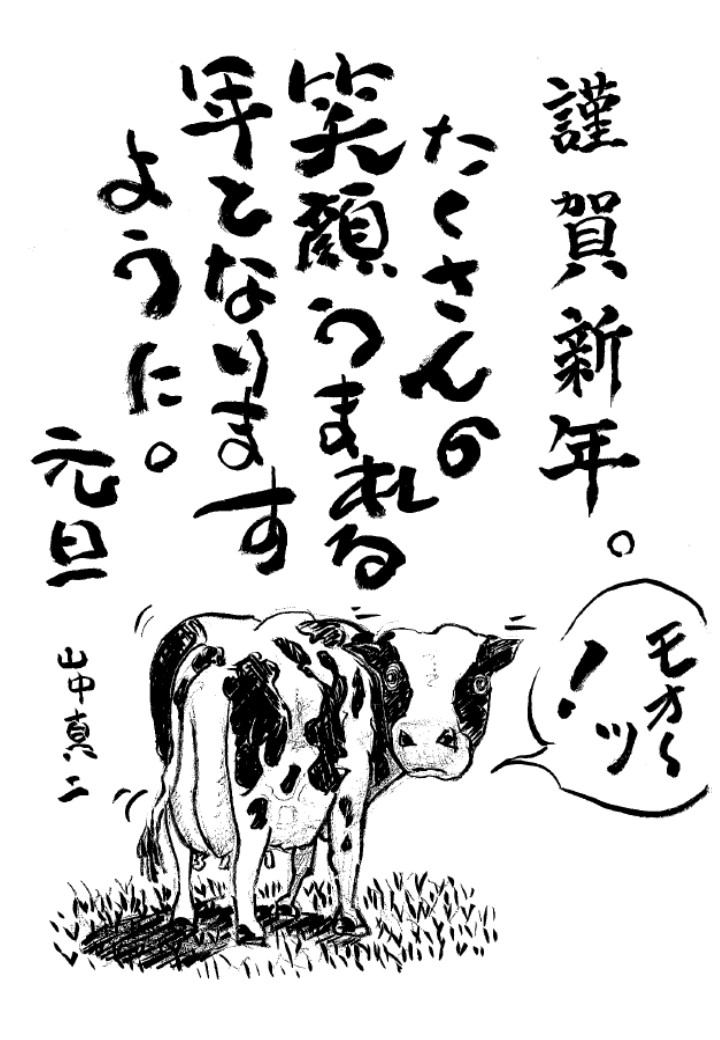 謹賀新年。
たくさんの
笑顔うまれる
年となります
ように。
元旦
モオ〜
ッ!
山中真二